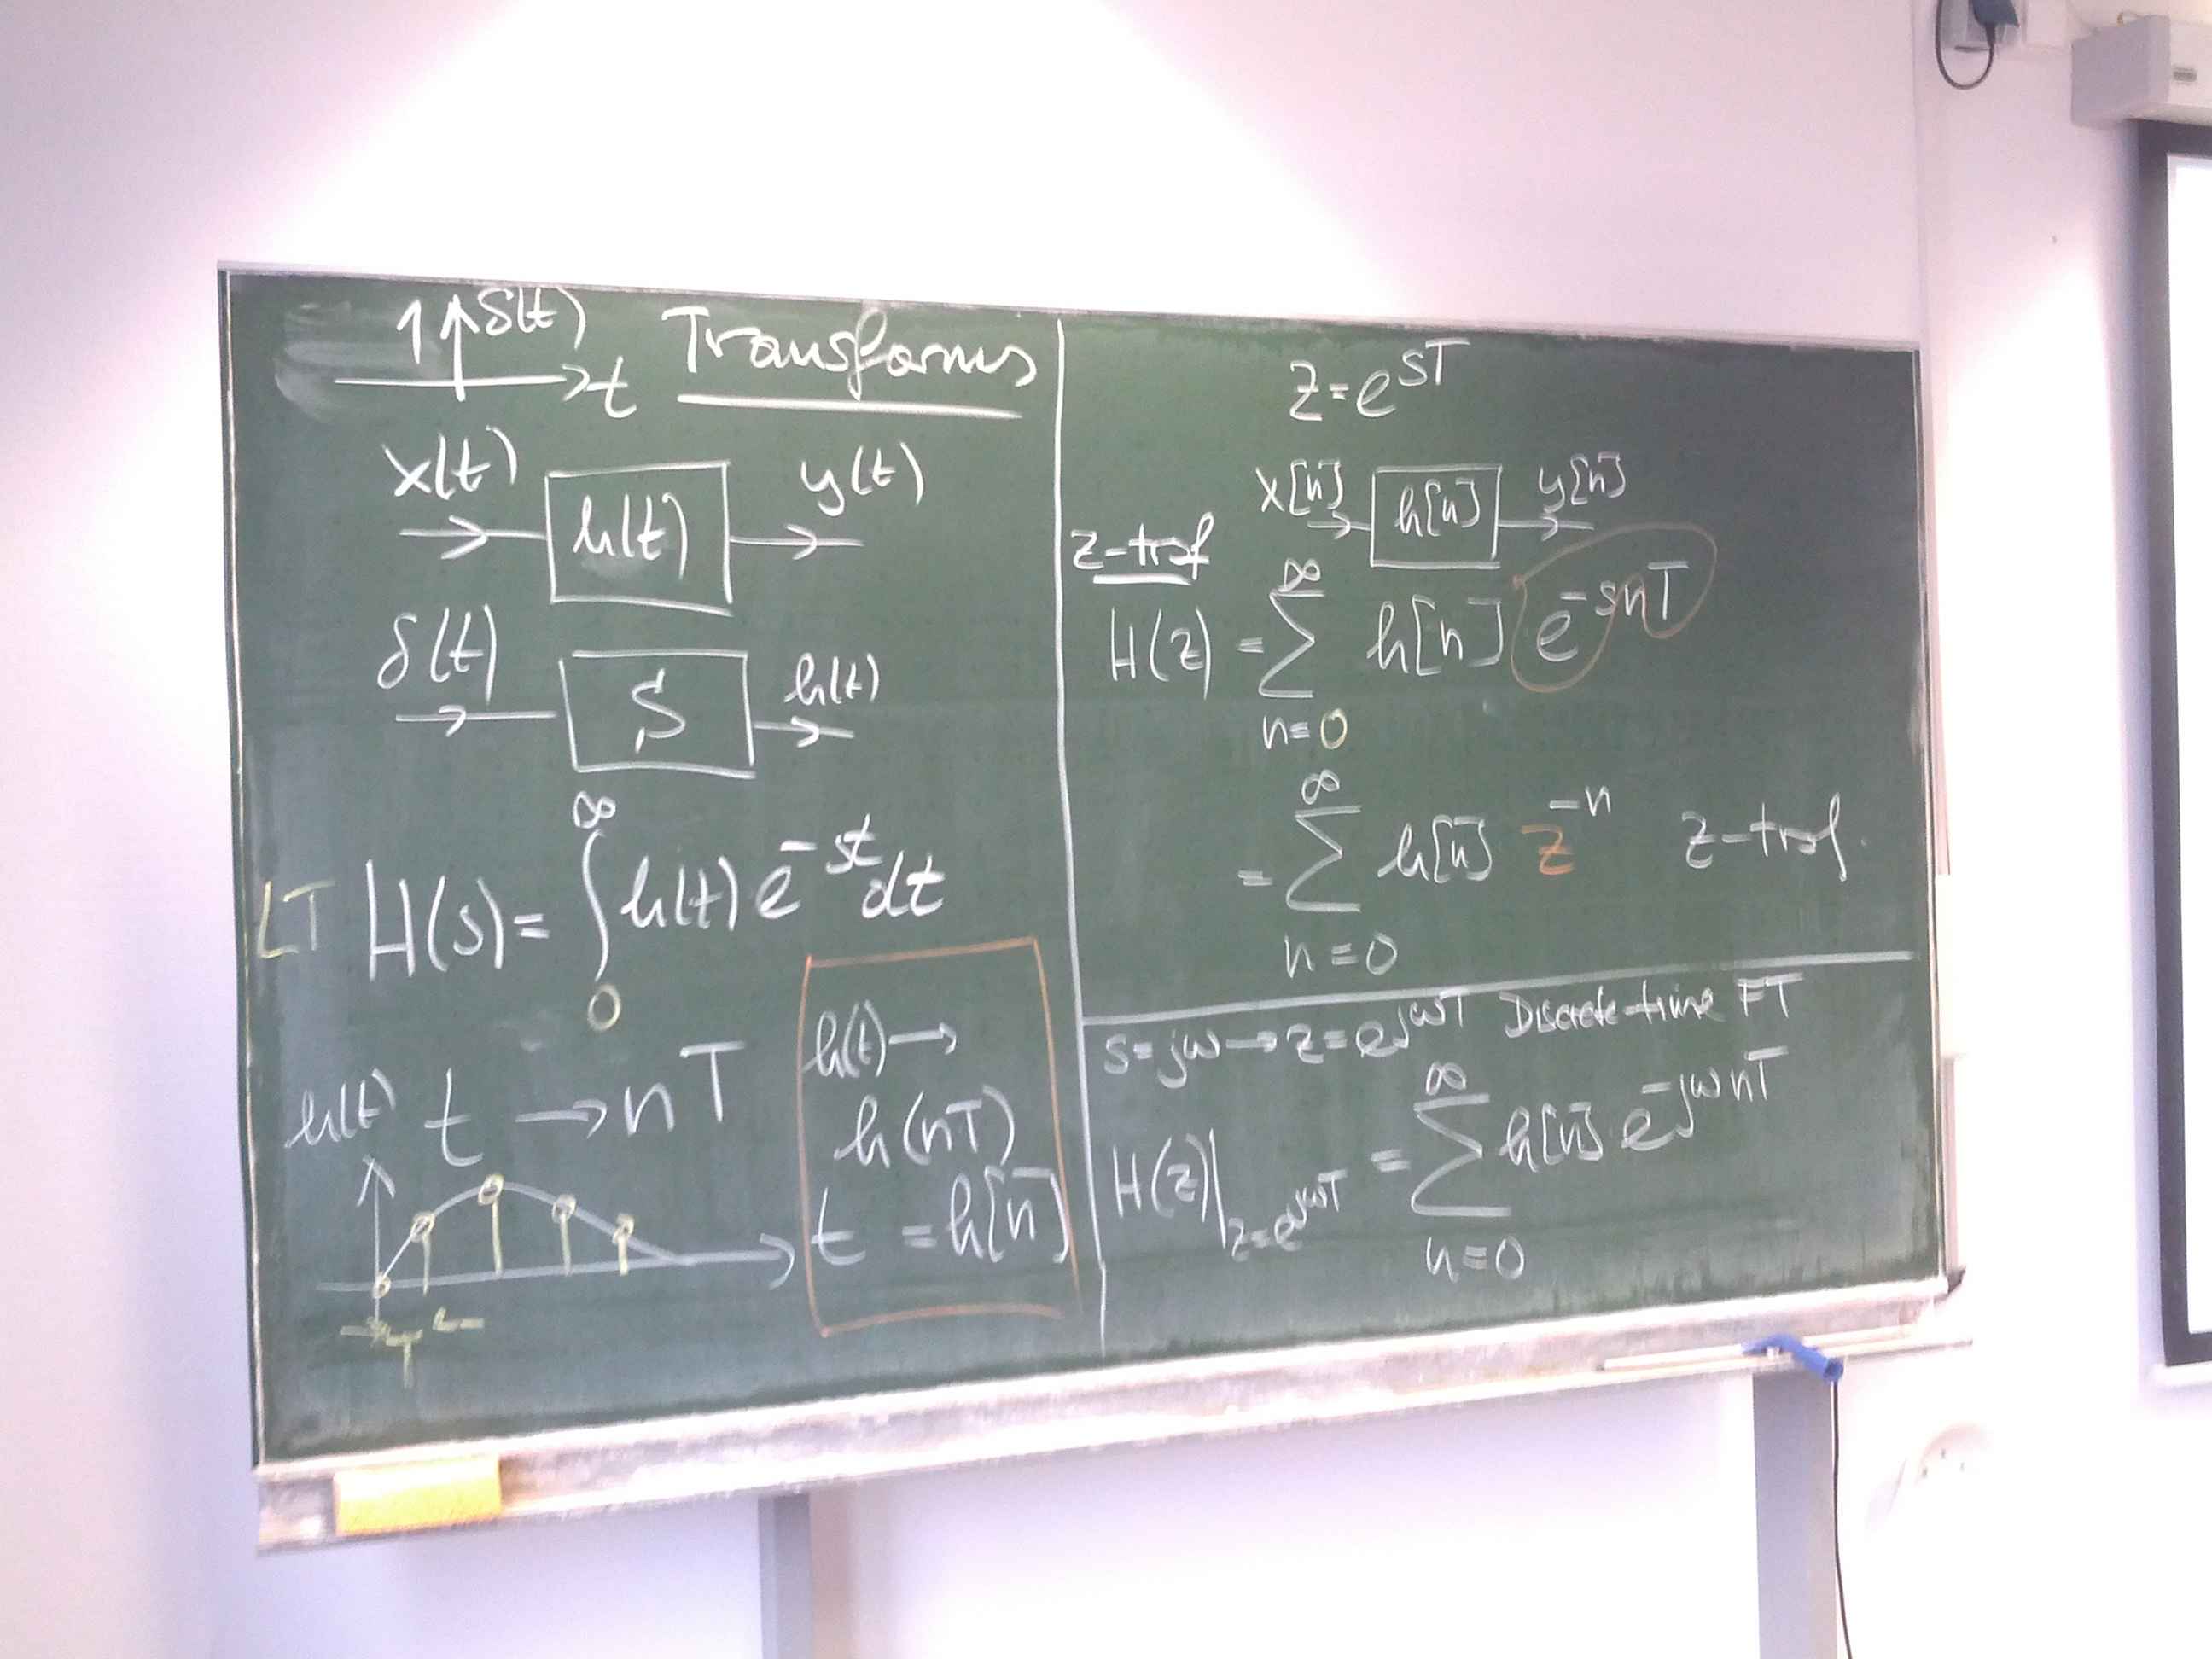 1 δ(t)
t
Transforms
x(t) h(t) y(t)
δ(t) S h(t)
LT H(s) = ∫₀^∞ h(t) e^{-st} dt
h(t) t → nT
t
T
h(t) →
h(nT)
= h[n]
z = e^{sT}
x[n] h[n] y[n]
z-trsf
H(z) = ∑_{n=0}^∞ h[n] e^{-snT}
= ∑_{n=0}^∞ h[n] z^{-n} z-trsf.
s = jω → z = e^{jωT} Discrete-time FT
H(z)|_{z=e^{jωT}} = ∑_{n=0}^∞ h[n] e^{-jωnT}